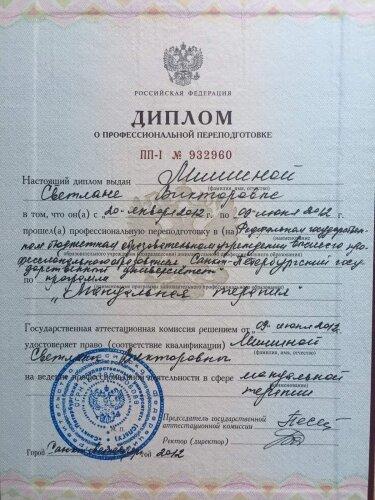 РОССИЙСКАЯ ФЕДЕРАЦИЯ
ДИПЛОМ
О ПРОФЕССИОНАЛЬНОЙ ПЕРЕПОДГОТОВКЕ
ПП-I № 932960
Настоящий диплом выдан Мишиной
(фамилия, имя, отчество)
Светлане Викторовне
в том, что он(а) с 20 января 2012 г. по 09 июня 2012
прошел(а) профессиональную переподготовку в (на) Федеральном государствен-
ном бюджетном образовательном учреждении высшего про-
фессионального образования Санкт-Петербургский госу-
дарственный университет
по программе
"Мануальная терапия"
Государственная аттестационная комиссия решением от 09 июня 2012
удостоверяет право (соответствие квалификации) Мишиной
(фамилия, имя, отчество)
Светланы Викторовны
на ведение профессиональной деятельности в сфере мануальной
терапии
Председатель государственной
аттестационной комиссии
М. П.
Ректор (директор)
Город Санкт-Петербург год 2012